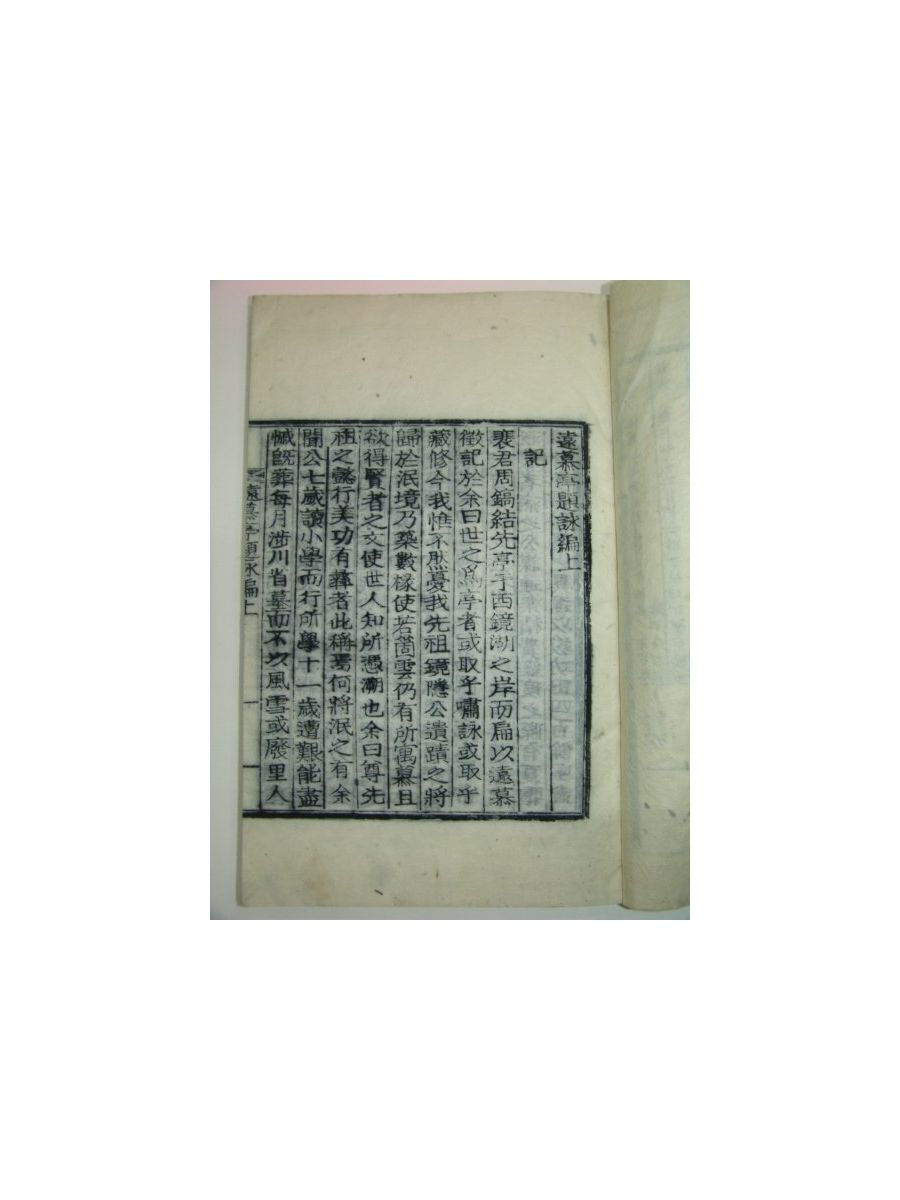 遠慕亭題詠編上
記
裵君周鎬結先亭于西鏡湖之岸而扁以遠慕
徵記於余曰世之爲亭者或取乎嘯詠或取乎
藏修今我惟不然憂我先祖鏡隱公遺蹟之將
歸於泯境乃築數椽使若箇雲仍有所寓慕且
欲得賢者之文使世人知所憑溯也余曰尊先
祖之懿行美功有彝者此稱焉何將泯之有余
聞公七歲讀小學而行所學十一歲遭艱能盡
慽旣葬每月涉川省墓而不以風雪或廢里人
遠慕亭題詠編上 一